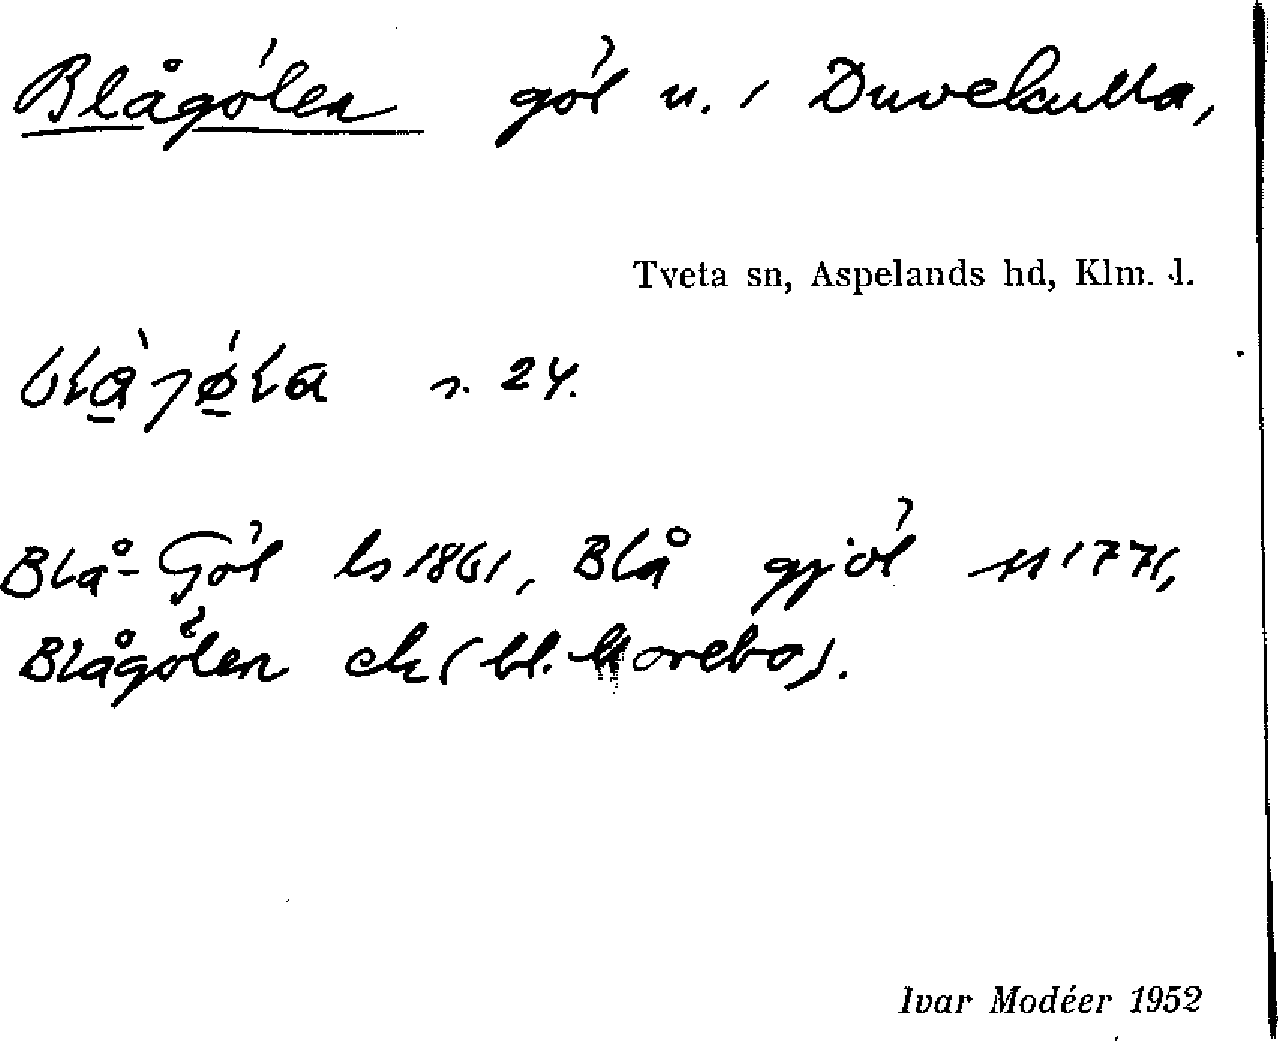 Blågölen göl u. i Duvekulla,
Tveta sn, Aspelands hd, Klm. l.
s. 24.
Blå-Göl ls 1861, Blå gjöl 1771,
Blågölen ek (bl. Morebo).
Ivar Modéer 1952